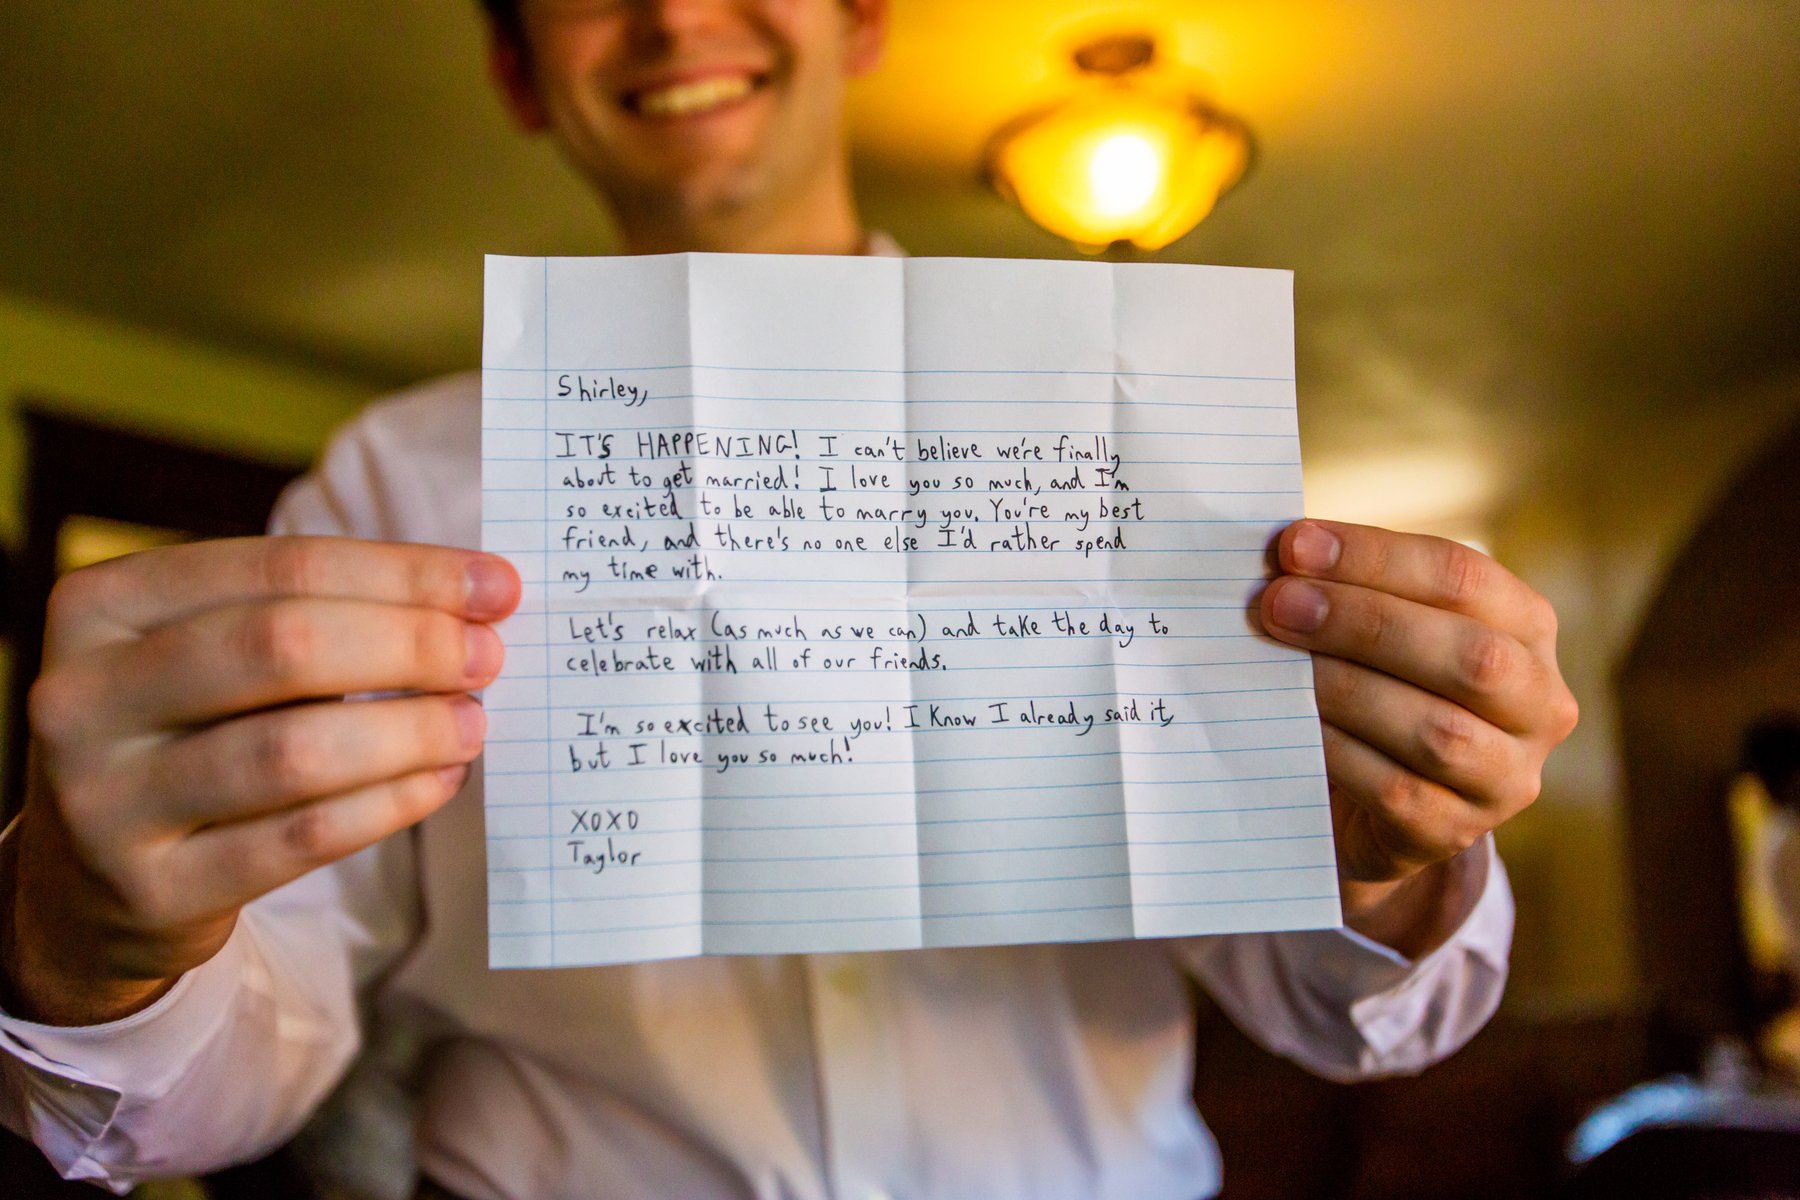 Shirley,
IT'S HAPPENING! I can't believe we're finally
about to get married! I love you so much, and I'm
so excited to be able to marry you. You're my best
friend, and there's no one else I'd rather spend
my time with.
Let's relax (as much as we can) and take the day to
celebrate with all of our friends.
I'm so excited to see you! I know I already said it,
but I love you so much!
XOXO
Taylor